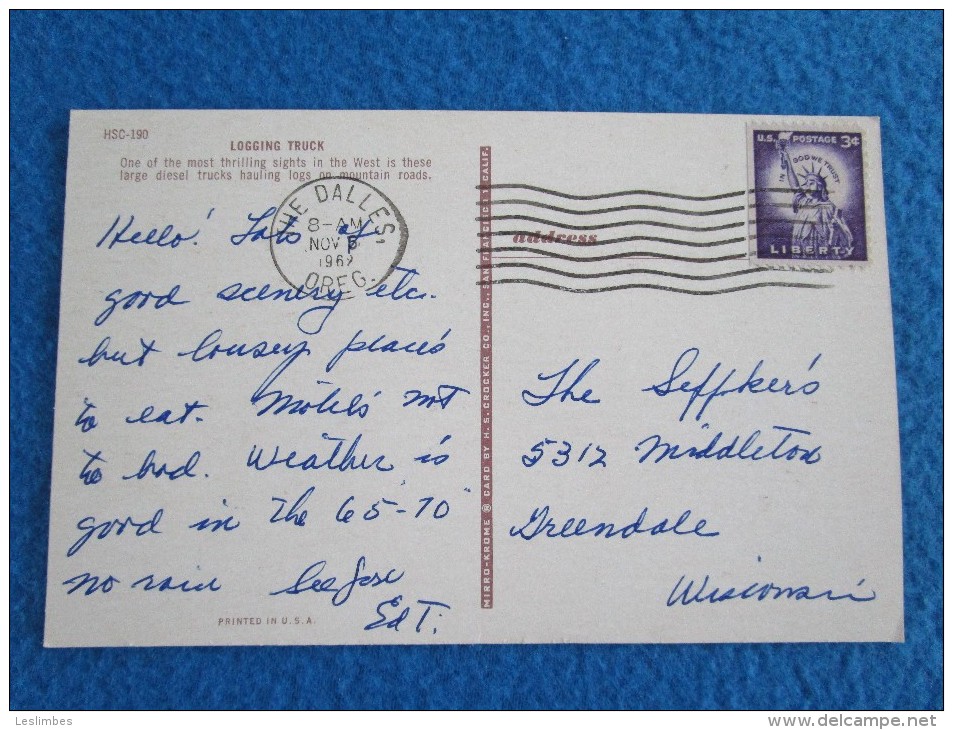 HSC-190
LOGGING TRUCK
One of the most thrilling sights in the West is these
large diesel trucks hauling logs on mountain roads.
THE DALLES,
8-AM
NOV 5
1962
OREG.
Hello! Lots of
good scenery etc.
but lousey places
to eat. Motels not
to bad. Weather is
good in the 65-70
no rain
Ed T.
PRINTED IN U.S.A.
MIRRO-KROME ® CARD BY H. S. CROCKER CO., INC., SAN FRANCISCO 1, CALIF.
address
U.S. POSTAGE 3¢
IN GOD WE TRUST
LIBERTY
The Seffker's
5312 Middleton
Greendale
Wisconsin
Leslimbes
www.delcampe.net